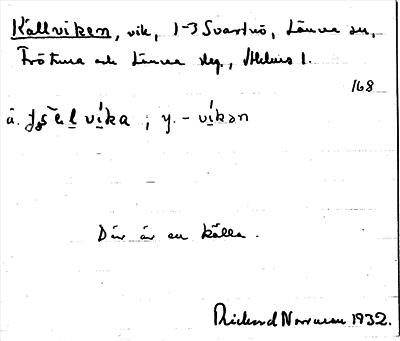 Källviken, vik, 1-3 Svartnö, Länna sn,
Frötuna och Länna skg., Sthlms l.
168
ä. víka ; y. - víkən
Där är en källa.
Rickard Norrman 1932.